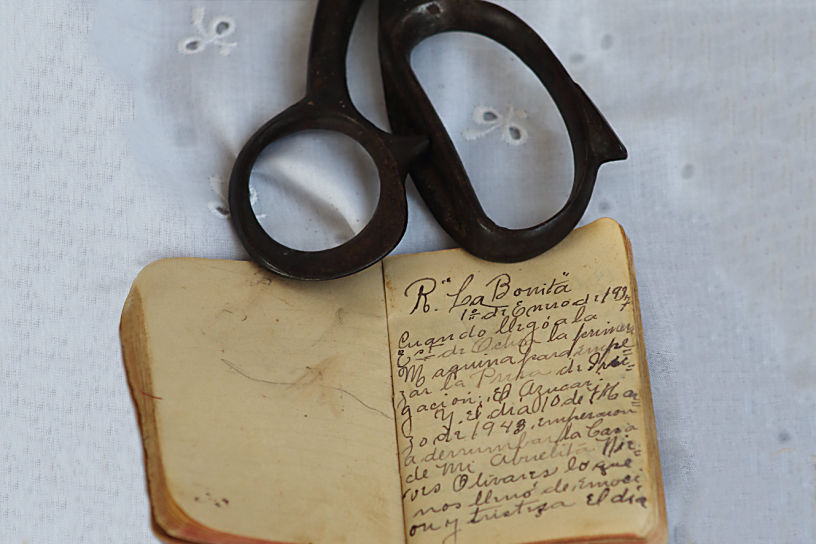 R. "La Bonita"
1º de Enero de 194
Cuando llegó a la
Est. de Ochoa la primera
Maquina para empe=
zar la Presa de Irri=
gacion; El Azucar.
Y el día 10 de Mar
zo de 1948, emperaron
a derrumbar la Casa
de Mi Abuelita Nie=
ves Olivares lo que
nos llenó de emoci
on y tristeza El día